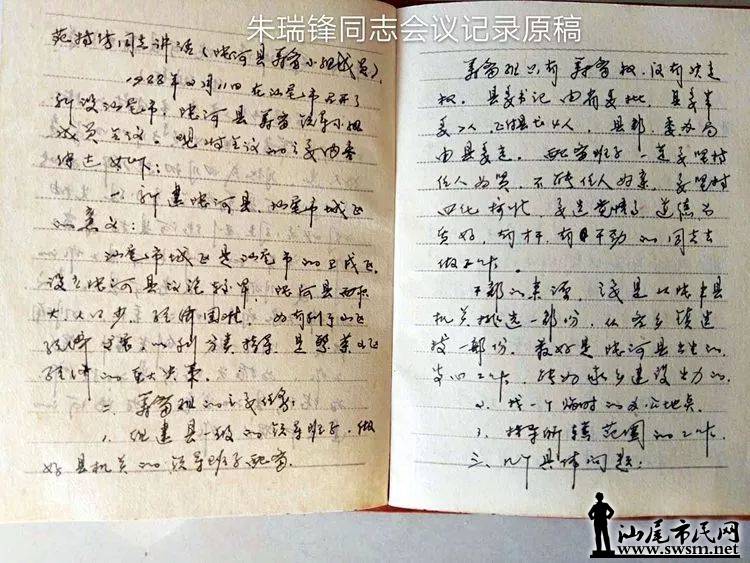 朱瑞锋同志会议记录原稿
同志讲话(陆河县筹备小组成员)。
1988年2月11日在汕尾市召开了
新设汕尾市,陆河县筹备领导小组
成员会议。现将会议的主要内容
如下:
一、新建陆河县,汕尾市城区
的意义:
汕尾市城区是汕尾市的
设立陆河县
大人口少,经济困难,为有利于山区
经济发展的分类指导,是繁荣山区
经济的重大决策。
二、筹备组的主要任务:
1、组建县一级的领导班子,做
好县机关的领导班子配备。
筹备组只有筹备权,没有决定
权。县委书记由省委批,县委常
委7人,正付县长4人,县部、委办局
由县委定。配备班子一定要坚持
任人为贤,不能任人为亲,要坚持
四化标准,要选党性强、道德
良好,有才、有干劲的同志去
做工作。
干部的来源,主要是从陆丰县
机关挑选一部份,从各乡镇选
拔一部份。最好是陆河县出生的,
安心工作,能为家乡建设出力的。
2、找一个临时的办公地点。
3、指导所辖范围的工作。
三、几个具体问题:
汕尾市民网
www.swsm.net